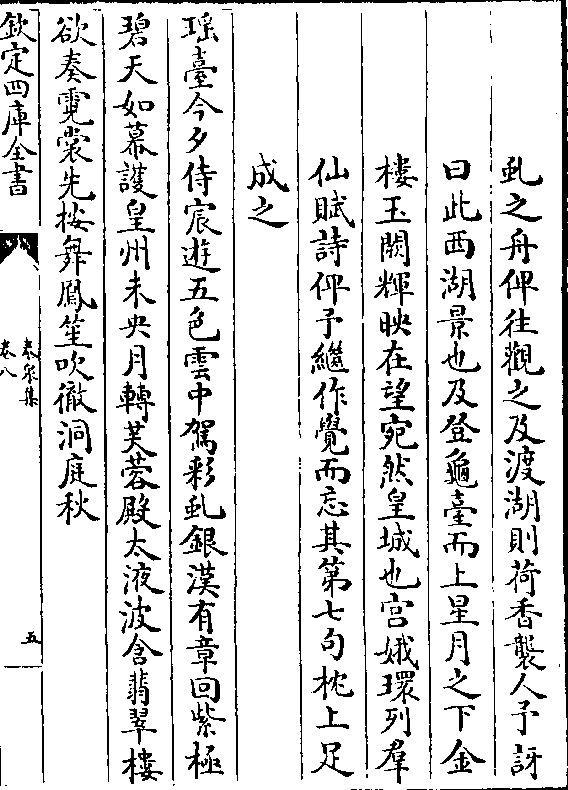 虬之舟俾往觀之及渡湖則荷香襲人予訝
曰此西湖景也及登龜臺而上星月之下金
樓玉闕輝映在望宛然皇城也宫娥環列羣
仙賦詩俾予繼作覺而忘其第七句枕上足
成之
瑶臺今夕侍宸遊五色雲中駕彩虬銀漢有章回紫極
碧天如幕護皇州未央月轉芙蓉殿太液波含翡翠樓
欲奏霓裳先按舞鳳笙吹徹洞庭秋
欽定四庫全書
卷八
五